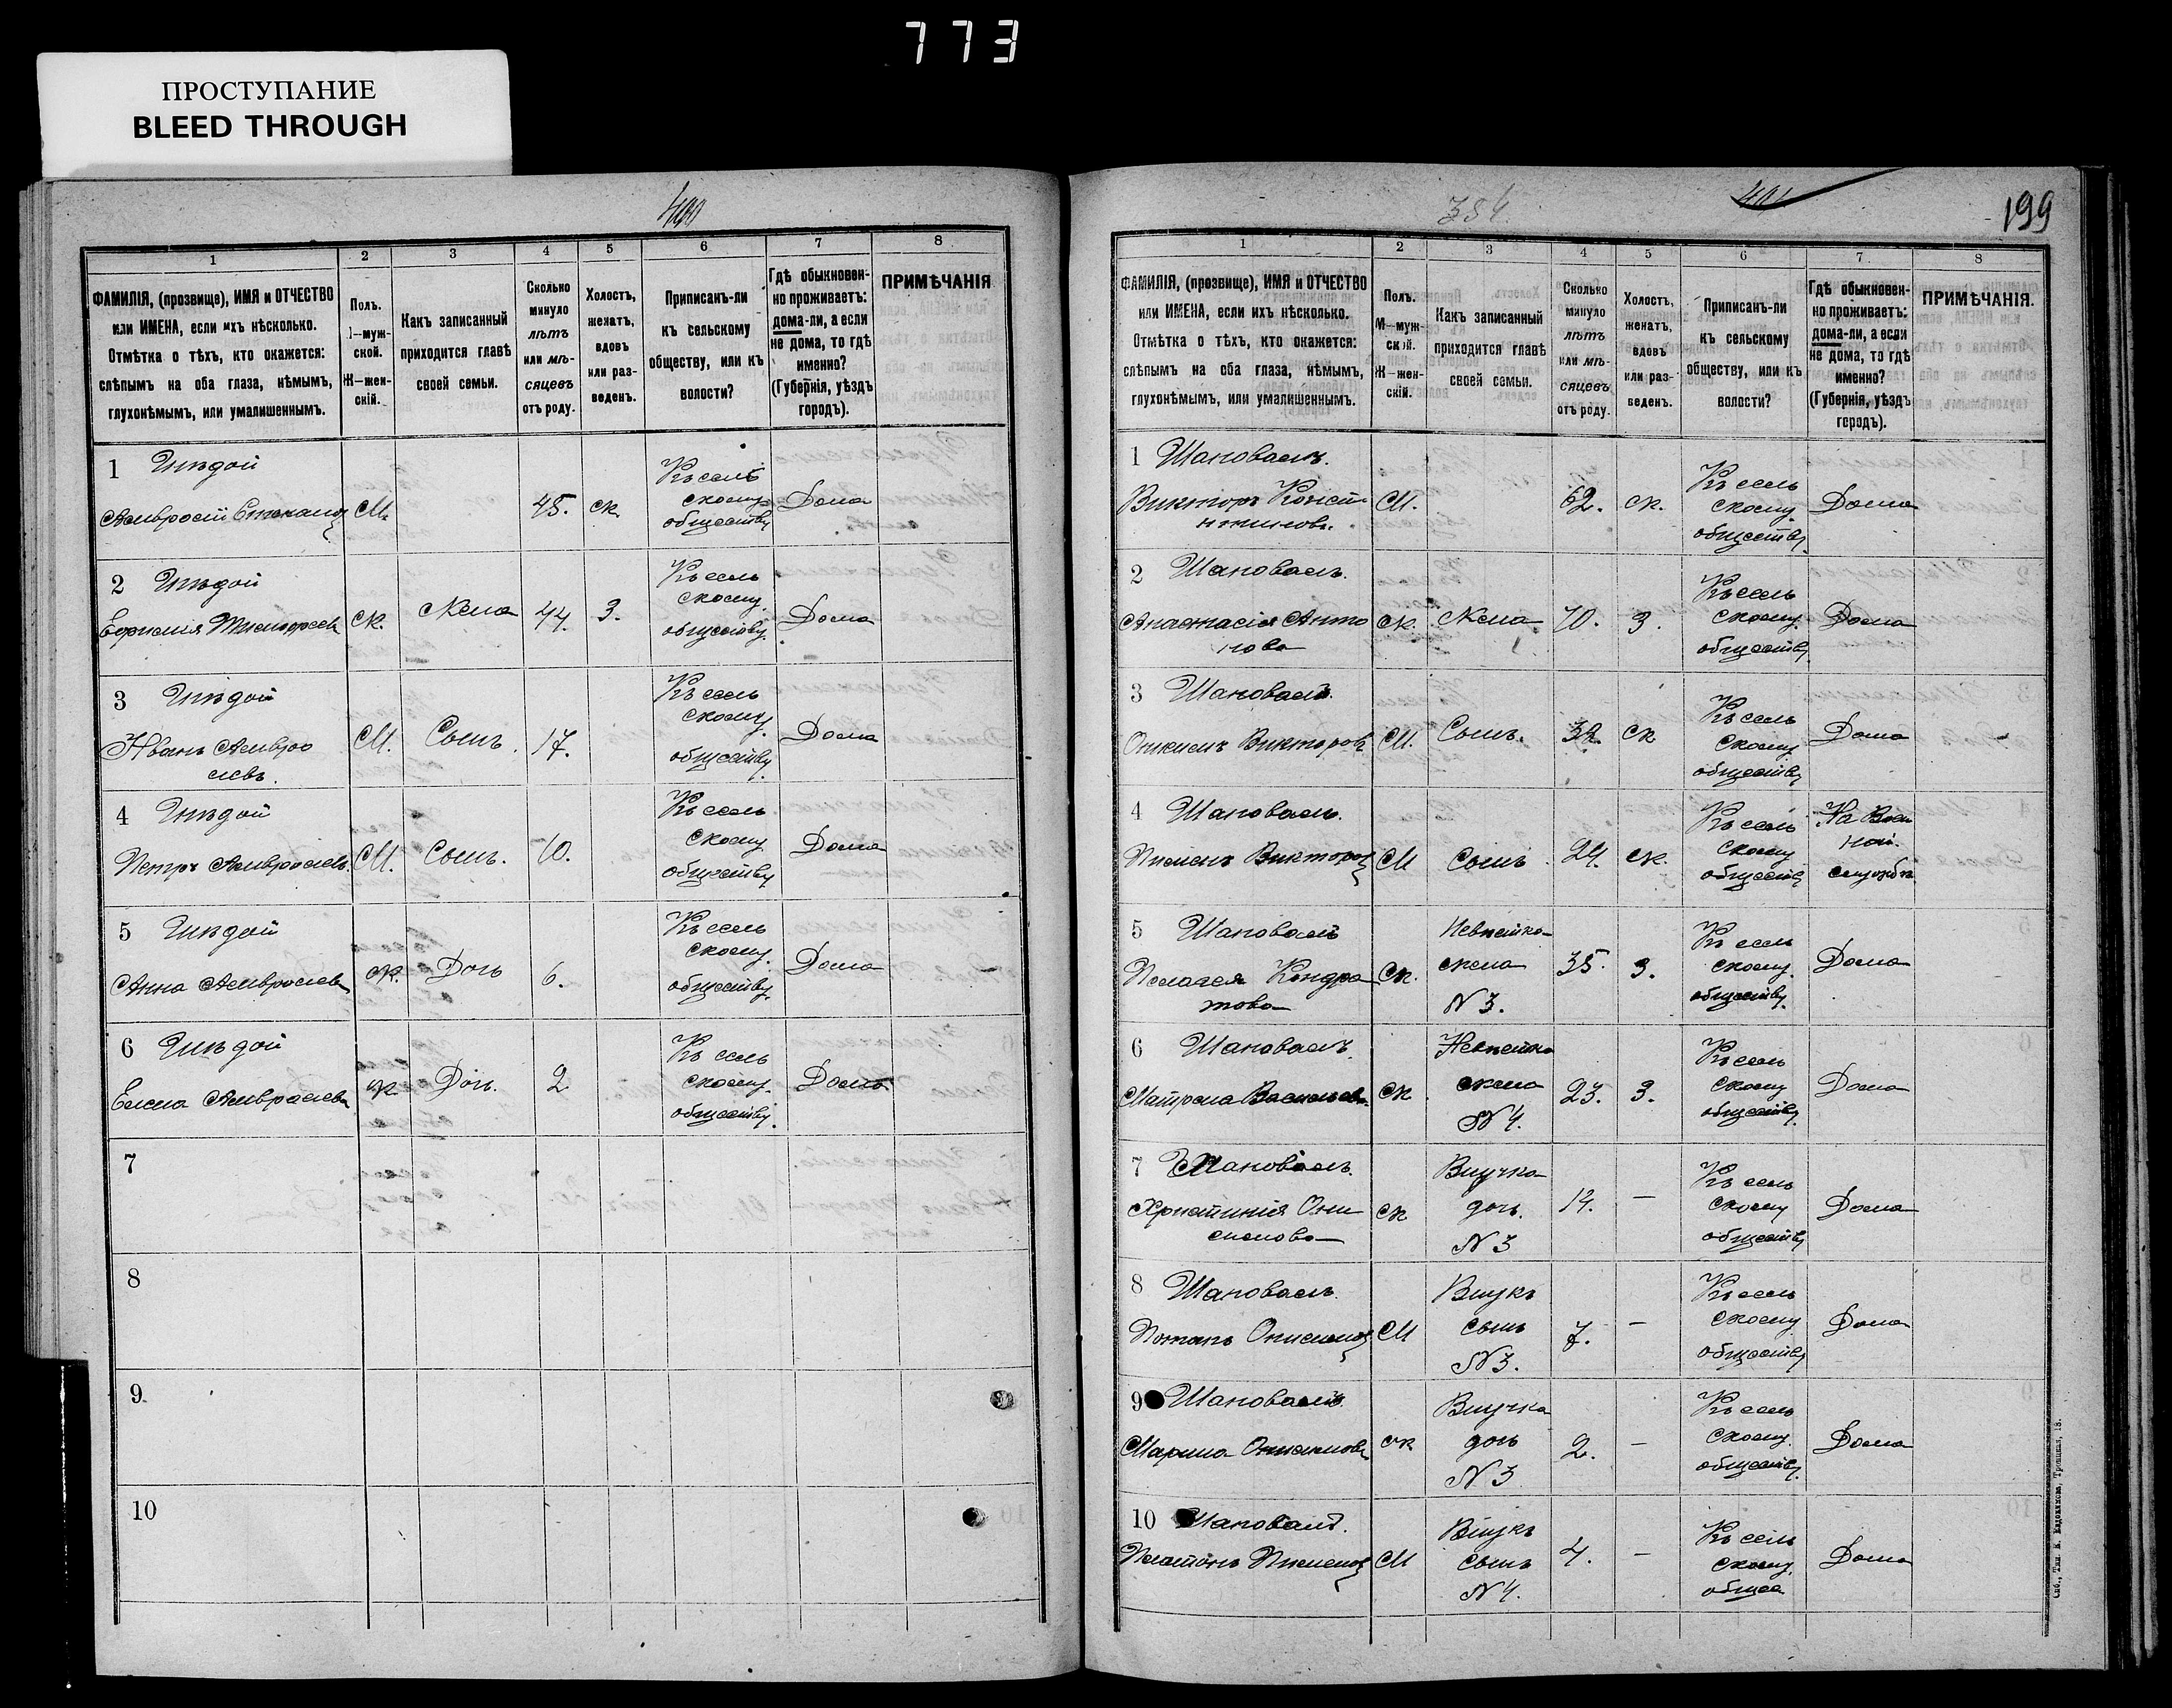 773
ПРОСТУПАНИЕ
BLEED THROUGH
400
1 2 3 4 5 6 7 8
ФАМИЛІЯ, (прозвище), ИМЯ и ОТЧЕСТВО
или ИМЕНА, если ихъ нѣсколько.
Отмѣтка о тѣхъ, кто окажется:
слѣпымъ на оба глаза, нѣмымъ,
глухонѣмымъ, или умалишеннымъ.
Полъ.
М—муж-
ской.
Ж—жен-
скій.
Какъ записанный
приходится главѣ
своей семьи.
Сколько
минуло
лѣтъ
или мѣ-
сяцевъ
отъ роду.
Холостъ,
женатъ,
вдовъ
или раз-
веденъ.
Приписанъ-ли
къ сельскому
обществу, или къ
волости?
Гдѣ обыкновен-
но проживаетъ:
дома-ли, а если
не дома, то гдѣ
именно?
(Губернія, уѣздъ
городъ).
ПРИМѢЧАНІЯ
1
Амвросій М. 45. ж. Къ сель
скому
обществу Дома
2
ж. Жена 44. З. Къ сель
скому
обществу Дома
3
Иванъ Амвро
сіевъ. М. Сынъ. 17. Къ сель
скому
обществу Дома
4
Петръ Амвросіевъ М. Сынъ. 10. Къ сель
скому
обществу Дома
5
Анна Амвросіева ж. Дочь 6. Къ сель
скому
обществу Дома
6
Елена Амвросіева ж Дочь. 2 Къ сель
скому
обществу Дома
7
8
9
10
354. 401 199
1 2 3 4 5 6 7 8
ФАМИЛІЯ, (прозвище), ИМЯ и ОТЧЕСТВО
или ИМЕНА, если ихъ нѣсколько.
Отмѣтка о тѣхъ, кто окажется:
слѣпымъ на оба глаза, нѣмымъ,
глухонѣмымъ, или умалишеннымъ.
Полъ.
М—муж-
ской.
Ж—жен-
скій.
Какъ записанный
приходится главѣ
своей семьи.
Сколько
минуло
лѣтъ
или мѣ-
сяцевъ
отъ роду.
Холостъ,
женатъ,
вдовъ
или раз-
веденъ.
Приписанъ-ли
къ сельскому
обществу, или къ
волости?
Гдѣ обыкновен-
но проживаетъ:
дома-ли, а если
не дома, то гдѣ
именно?
(Губернія, уѣздъ
городъ).
ПРИМѢЧАНІЯ.
1 Шаповалъ.
Викторъ Конст М. 62. ж. Къ сель
скому
обществу Дома
2 Шаповалъ.
Анастасія Анто
нова ж. Жена 70. З. Къ сель
скому
обществу Дома
3 Шаповалъ.
Викторов М. Сынъ. 32. ж Къ сель
скому
обществу Дома
4 Шаповалъ.
Пименъ Викторов М Сынъ 24. ж. Къ сель
скому
обществу На Воен
ной
службѣ
5 Шаповалъ
Пелагея Кондра
това ж. Невѣстка
жена
N 3. 35. З. Къ сель
скому
обществу Дома
6 Шаповалъ.
Матрона Васильева ж Невѣстка
жена
N 4. 23. З. Къ сель
скому
обществу Дома
7 Шаповалъ.
Христинія Они
симова ж Внучка
дочь.
N 3 14. — Къ сель
скому
обществу Дома
8 Шаповалъ.
Потапъ Онисимов М Внукъ
сынъ
N 3. 7. — Къ сель
скому
обществу Дома
9 Шаповалъ.
Марина Онисимов ж Внучка
дочь
N 3 2. — Къ сель
скому
обществу Дома
10 Шаповалъ.
Платонъ Пименов М Внукъ
сынъ
N 4. 4. — Къ сель
скому
общес Дома